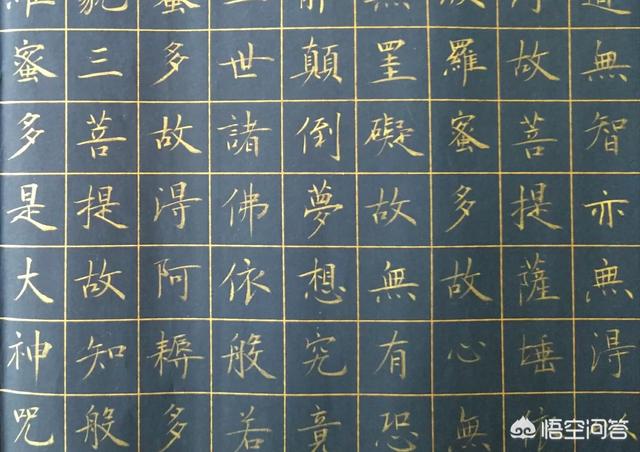 道無智亦無淂
故菩提薩埵
羅蜜多故心無
無罣礙故無有恐
顛倒夢想究竟
世諸佛依般若
蜜多故淂阿耨多
藐三菩提故知般
羅蜜多是大神咒
悟空问答